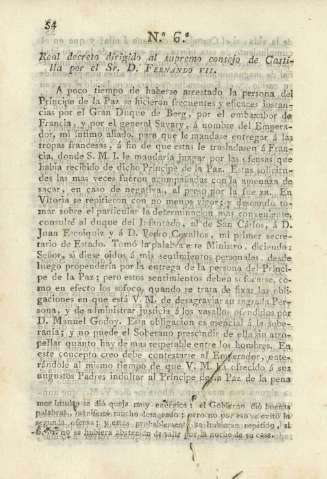 54
N.º 6.º
Real decreto dirigido al supremo consejo de Casti-
lla por el Sr. D. FERNANDO VII.
A poco tiempo de haberse arrestado la persona del
Príncipe de la Paz se hicieron frecuentes y eficaces instan-
cias por el Gran Duque de Berg, por el embaxador de
Francia, y por el general Savary, á nombre del Empera-
dor, mi íntimo aliado, para que le mandase entregar á las
tropas francesas, á fin de que estas le trasladasen á Fran-
cia, donde S. M. I. le mandaría juzgar por las ofensas que
habia recibido de dicho Príncipe de la Paz. Estas solicitu-
des las mas veces fueron acompañadas con la amenaza de
sacar, en caso de negativa, al preso por la fuerza. En
Vitoria se repitieron con no menos vigor; y deseando to-
mar sobre el particular la determinacion mas conveniente,
consulté al duque del Infantado, al de San Cárlos, á D.
Juan Escoiquiz y á D. Pedro Cevallos, mi primer secre-
tario de Estado. Tomó la palabra este Ministro, diciendo:
Señor, si diese oidos á mis sentimientos personales, desde
luego propenderia por la entrega de la persona del Prínci-
pe de la Paz; pero estos sentimientos deben sofocarse, co-
mo en efecto los sofoco, quando se trata de fixar las obli-
gaciones en que está V. M. de desagraviar su sagrada Per-
sona, y de administrar justicia á los vasallos ofendidos por
D. Manuel Godoy. Esta obligacion es esencial á la sobe-
ranía; y no puede el Soberano prescindir de ella sin atro-
pellar quanto hay de mas respetable entre los hombres. En
este concepto creo debe contestarse al Emperador, ente-
rándole al mismo tiempo de que V. M. ha ofrecido á sus
augustos Padres indultar al Príncipe de la Paz de la pena
mer insulto se dió queja muy enérgica: el Gobierno dió buenas
palabras, manifestó mucho desagrado; pero no por eso se evitó la
segunda ofensa; y estas probablemente se hubieran repetido, si
no se hubiera abstenido de salir por la noche de su casa.